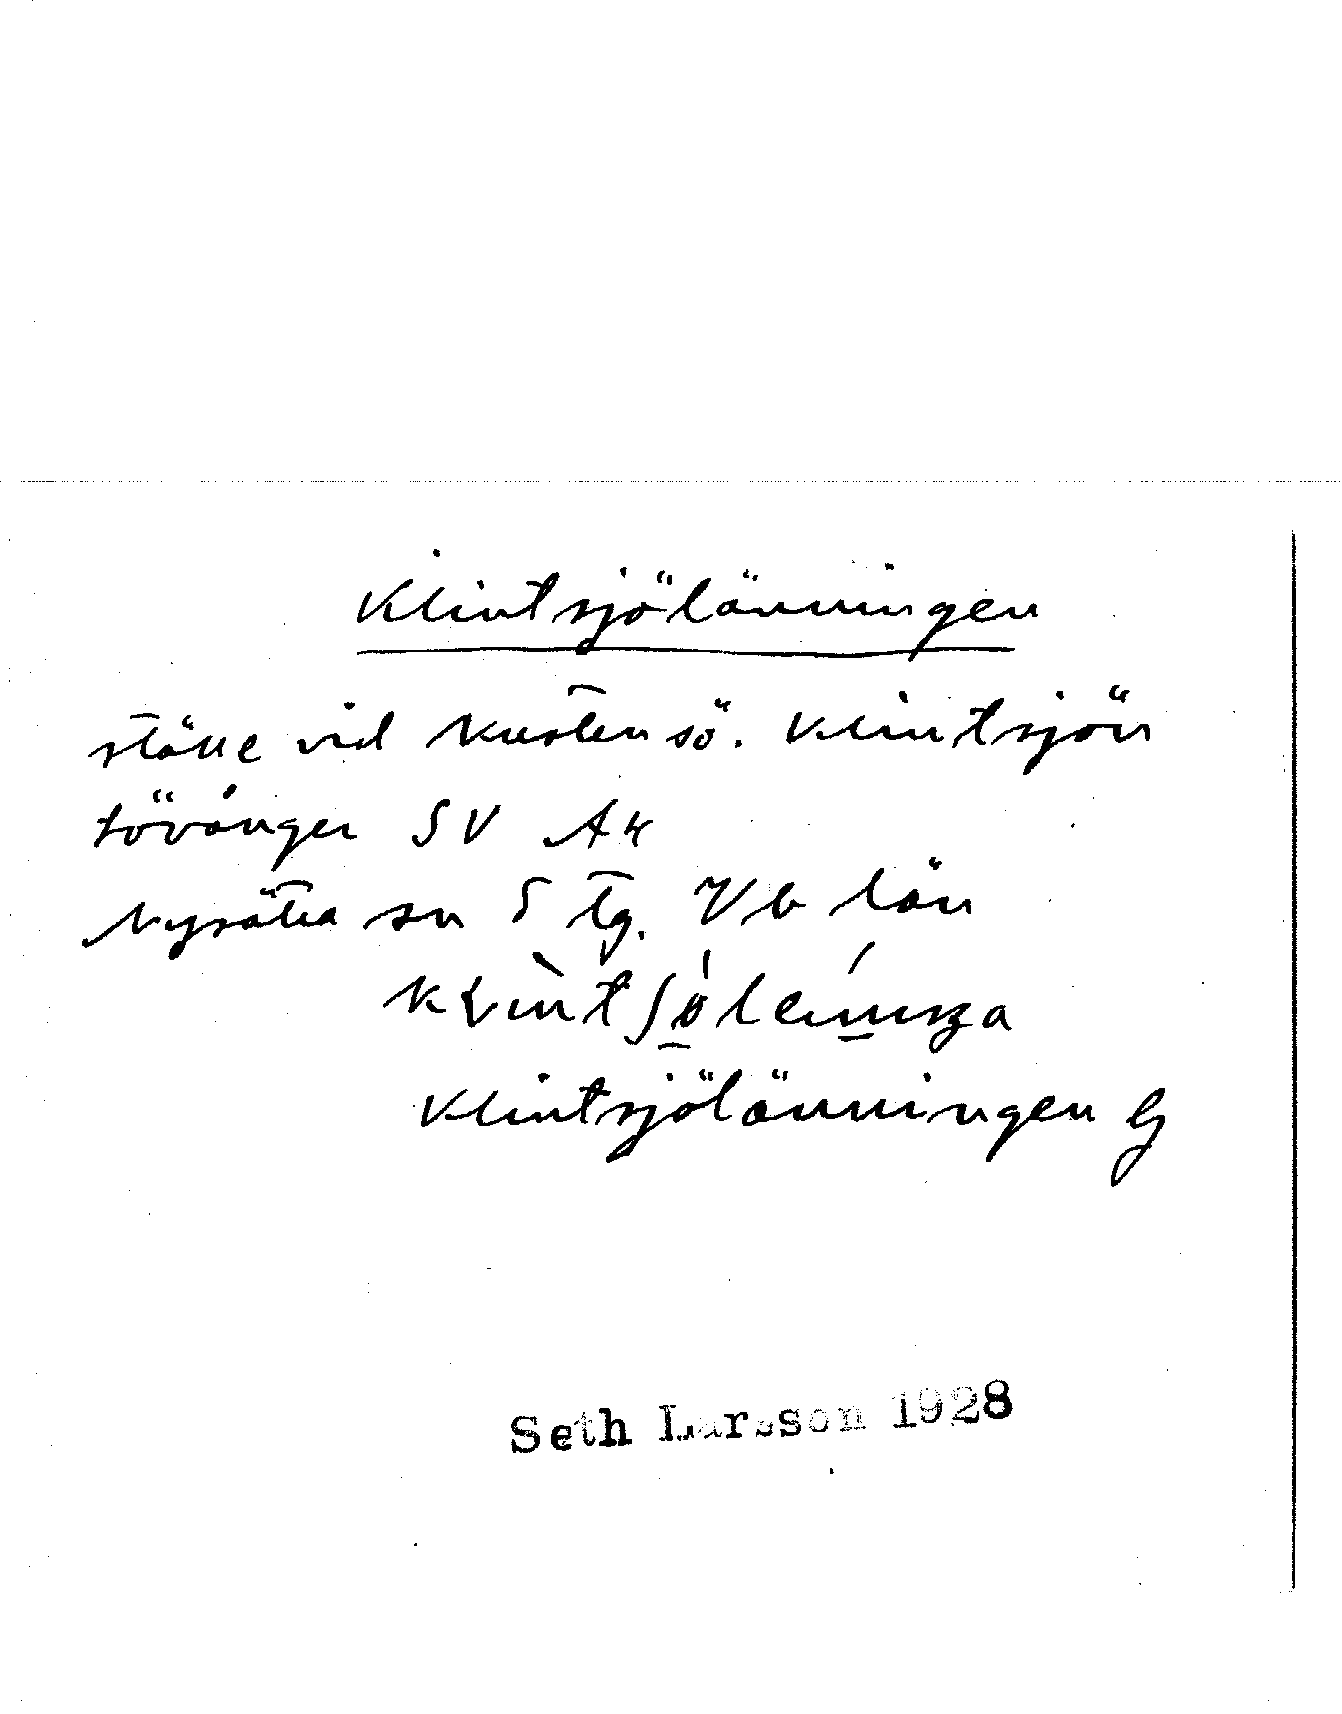 Klintsjölänningen
ställe vid kusten sö. Klintsjön
Lövånger SV Ak
Nysätra sn S tg. Vb län
Klintsjölänningen
Seth Larsson 1928